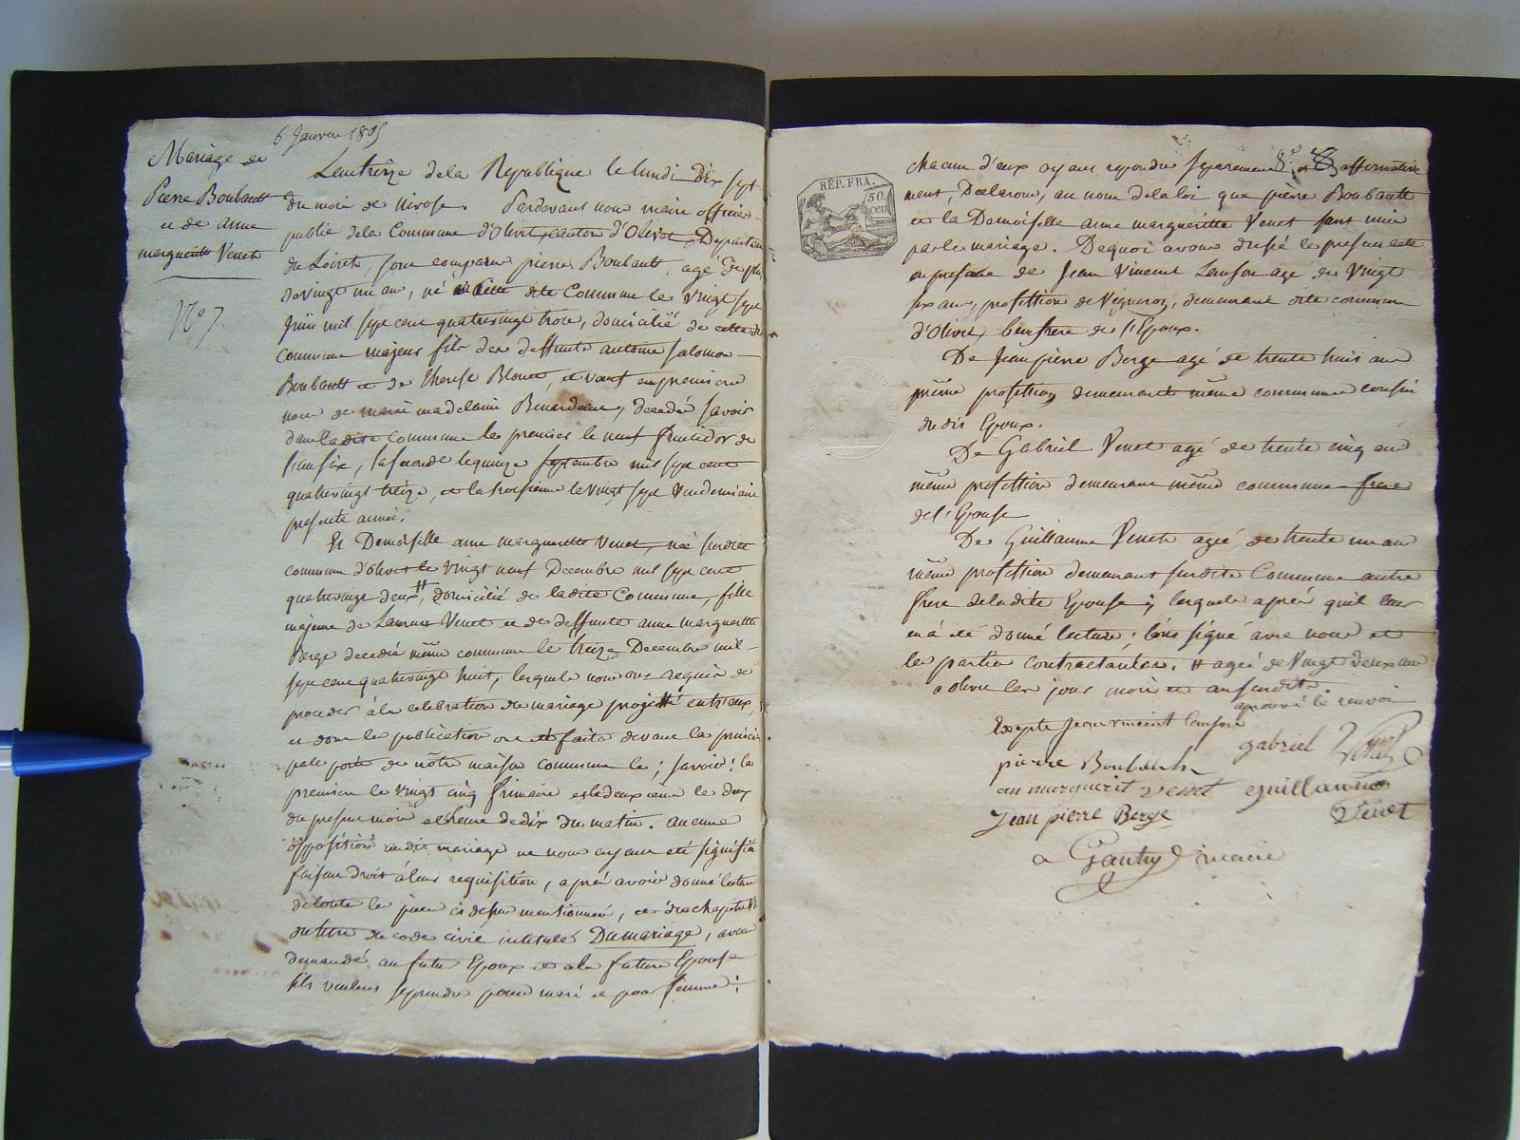 6 Janvier 1805
Mariage de
Pierre Boubault
et de anne
margueritte Venet
N.o 7
L'an treize de la Republique le lundi Dix sept
du mois de nivose. Pardevant nous maire officier
public de la Commune d'Olivet, canton d'Olivet, Departem
du Loiret, sont comparu pierre Boubault, agé de plus
de vingt un an, né dite Commune le vingt sept
Juin mil sept cent quatrevingt trois, domicilié de cette de
commune majeur fils des deffunts antoine salomon
Boubault et de therese Blouet, et vaeuf en premiere
noce de marie madelaine decedés savoir
dans ladite commune les premier le neuf fructidor de
l'an six, la seconde le quinze septembre mil sept cent
quatrevingt treize, et la troisieme le vingt sept Vendemiaire
presente année.
Et Demoiselle anne marguerette Venet, née susdite
commune d'olivet le vingt neuf Decembre mil sept cent
quatrevingt deux #, domicilié de ladite Commune, fille
majeure de Laurent Venet et de deffunte anne marguerite
Berge decedée même commune le treize Decembre mil
sept cent quatrevingt huit, lesquels nous ont requis de
proceder à la celebration du mariage projetté entr'eux,
et dont les publications ont eté faites devant la princi
pale porte de nôtre maison commune ; savoir : la
premiere le vingt cinq frimaire et la deuxieme le deux
du present mois a l'heure de dix du matin. aucune
opposition audit mariage ne nous ayant eté signifiée
faisant droit à leur requisition, après avoir donné lecture
de toute les pieces ci dessus mentionnées, et du chapitre VI
du titre du code civil intitulé Du mariage, avons
demandé au futur Epoux et a la future Epouse
s'ils veulent se prendre pour mari et pour femme :
REP. FRA.
50
cen
chacun d'eux ayant repondu separement et affirmative
ment, Declarons, au nom de la loi que pierre Boubault
et la Demoiselle anne marguerette Venet sont unis
par le mariage. De quoi avons dressé le present acte
en presence de Jean Vincent Lanson agé de Vingt
six ans, profession de Vigneron, demeurant dite commune
d'Olivet, beaufrere de l'Epoux.
De Jean pierre Berge agé de trente huit ans
même profession demeurant même commune cousin
du dis Epoux.
De Gabriel Venet agé de trente cinq an
même profession demeurant même commune frere
de l'Epouse
De Guillaume Venet agé de trente un an
même profession demeurant susdite Commune autre
frere de ladite Epouse ; lesquels après qu'il leur
en à eté donné lecture ; l'ons signé avec nous et
les parties contractantes. # ageé de Vingt deux ans
a olivet les jour mois et an susdits.
aprouvé le renvoi
Excepté Jean vincent lanson
gabriel Venet
pierre Boubault
an marguerit Venet guillaume
Venet
Jean pierre Berge
Gautry maire